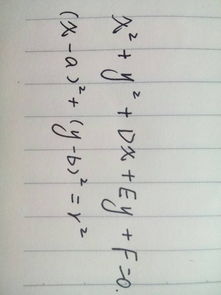 x² + y² + Dx + Ey + F = 0.
(x - a)² + (y - b)² = r²